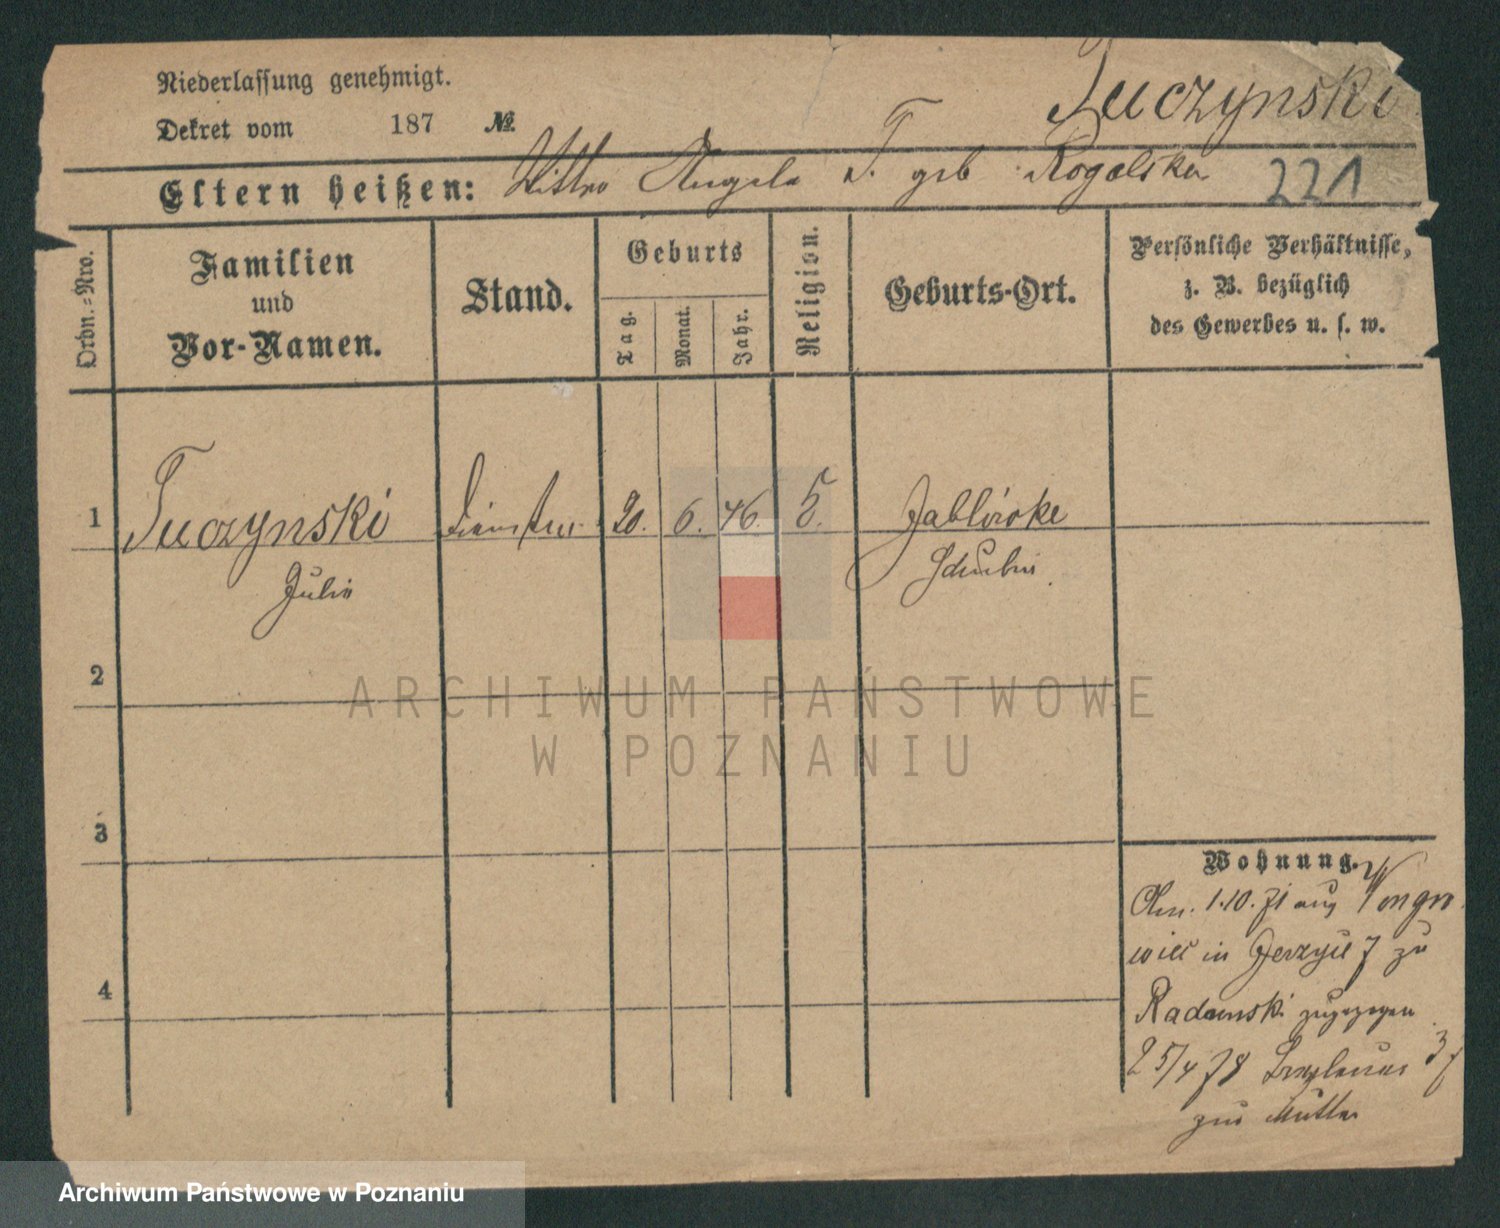 Niederlassung genehmigt.
Dekret vom 187 №
Tuczynski
Eltern heißen: Angela T. geb Rogalska
221
Ordn.=Nro.
Familien
und
Vor-Namen.
Stand.
Geburts
Tag.
Monat.
Jahr.
Religion.
Geburts-Ort.
Persönliche Verhältnisse,
z. B. bezüglich
des Gewerbes u. s. w.
1 Tuczynski 20. 6. 46.
Julie
2
3
4
ARCHIWUM PAŃSTWOWE
W POZNANIU
Wohnung.
1.10.71 aus Wongro
wiec in 7 zu
Radunski zugezogen
25/4 78
zur Mutter
Archiwum Państwowe w Poznaniu